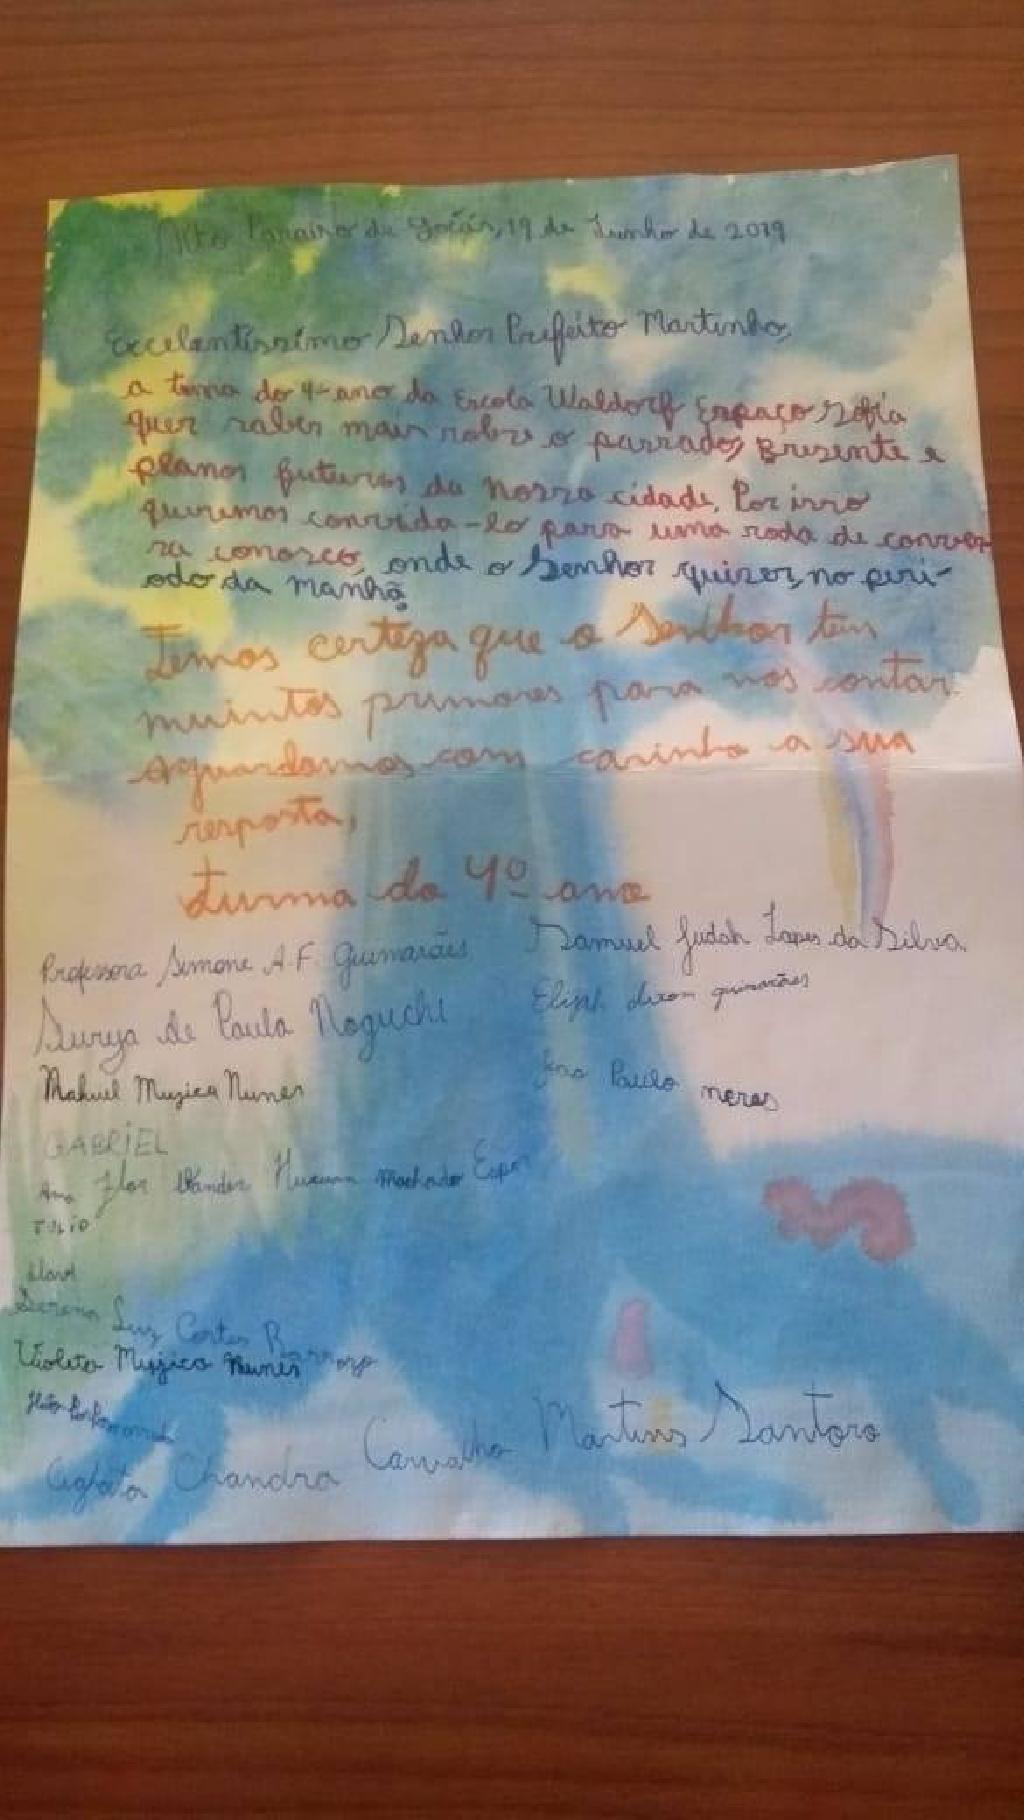 Alto Paraiso de Goiás, 19 de Junho de 2019
Excelentissimo Senhor Prefeito Martinho,
a turma do 4º ano da Escola Waldorf Espaço Sofia
quer saber mais sobre o passado, presente e
planos futuros da nossa cidade. Por isso
queremos convida-lo para uma roda de conver
sa conosco, onde o Senhor quiser, no perí-
odo da manhã.
Temos certeza que o Senhor tem
muintos primores para nos contar.
Aguardamos com carinho a sua
resposta,
turma do 4º ano
Professora Simone A.F. Guimarães
Samuel Judah Lopes da Silva
Surya de Paula Noguchi
Elijah dixon guimarães
Mahuel Muzica Nunes
João Paulo neres
GABRIEL
Ana Flor Machado
TULIO
Serena Luz Cortes Barroso
Violeta Mujica Nunes
Agata Chandra Carvalho Martins Santoro